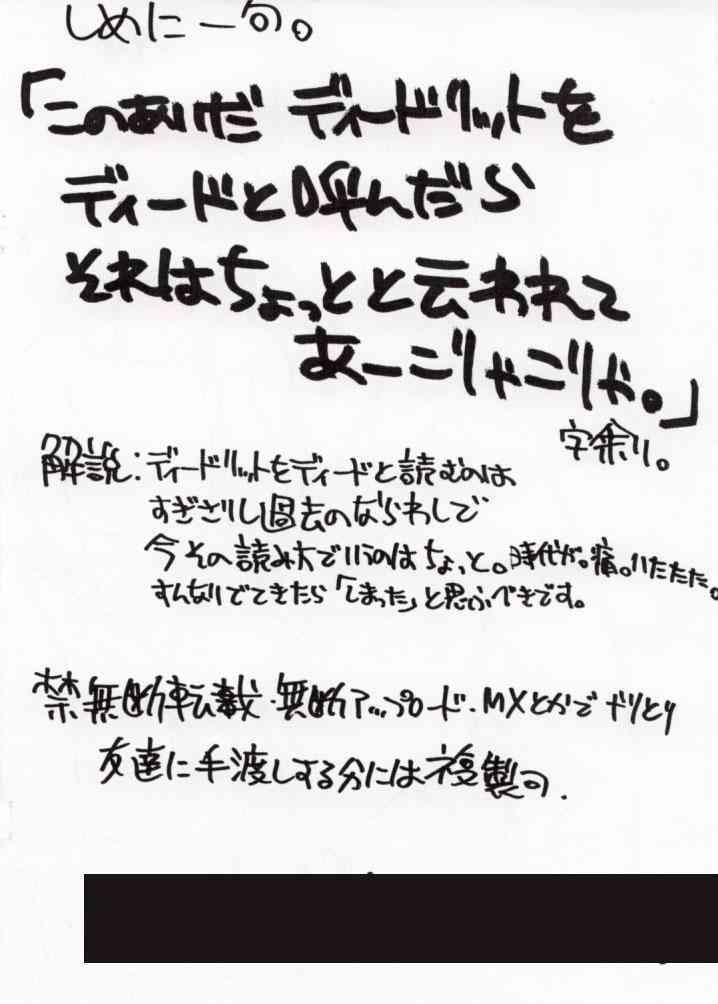 しめに一句。
「このあいだ ディードリットを
ディードと呼んだら
それはちょっとと云われて
あーこりゃこりゃ。」
字余り。
解説:ディードリットをディードと読むのは
すぎさりし過去のならわしで
今その読み方でいうのはちょっと。時代が。痛。いたたた。
すんなりでてきたら「しまった」と思ふべきです。
禁無断転載・無断アップロード・MXとかでやりとり
友達に手渡しする分には複製可.